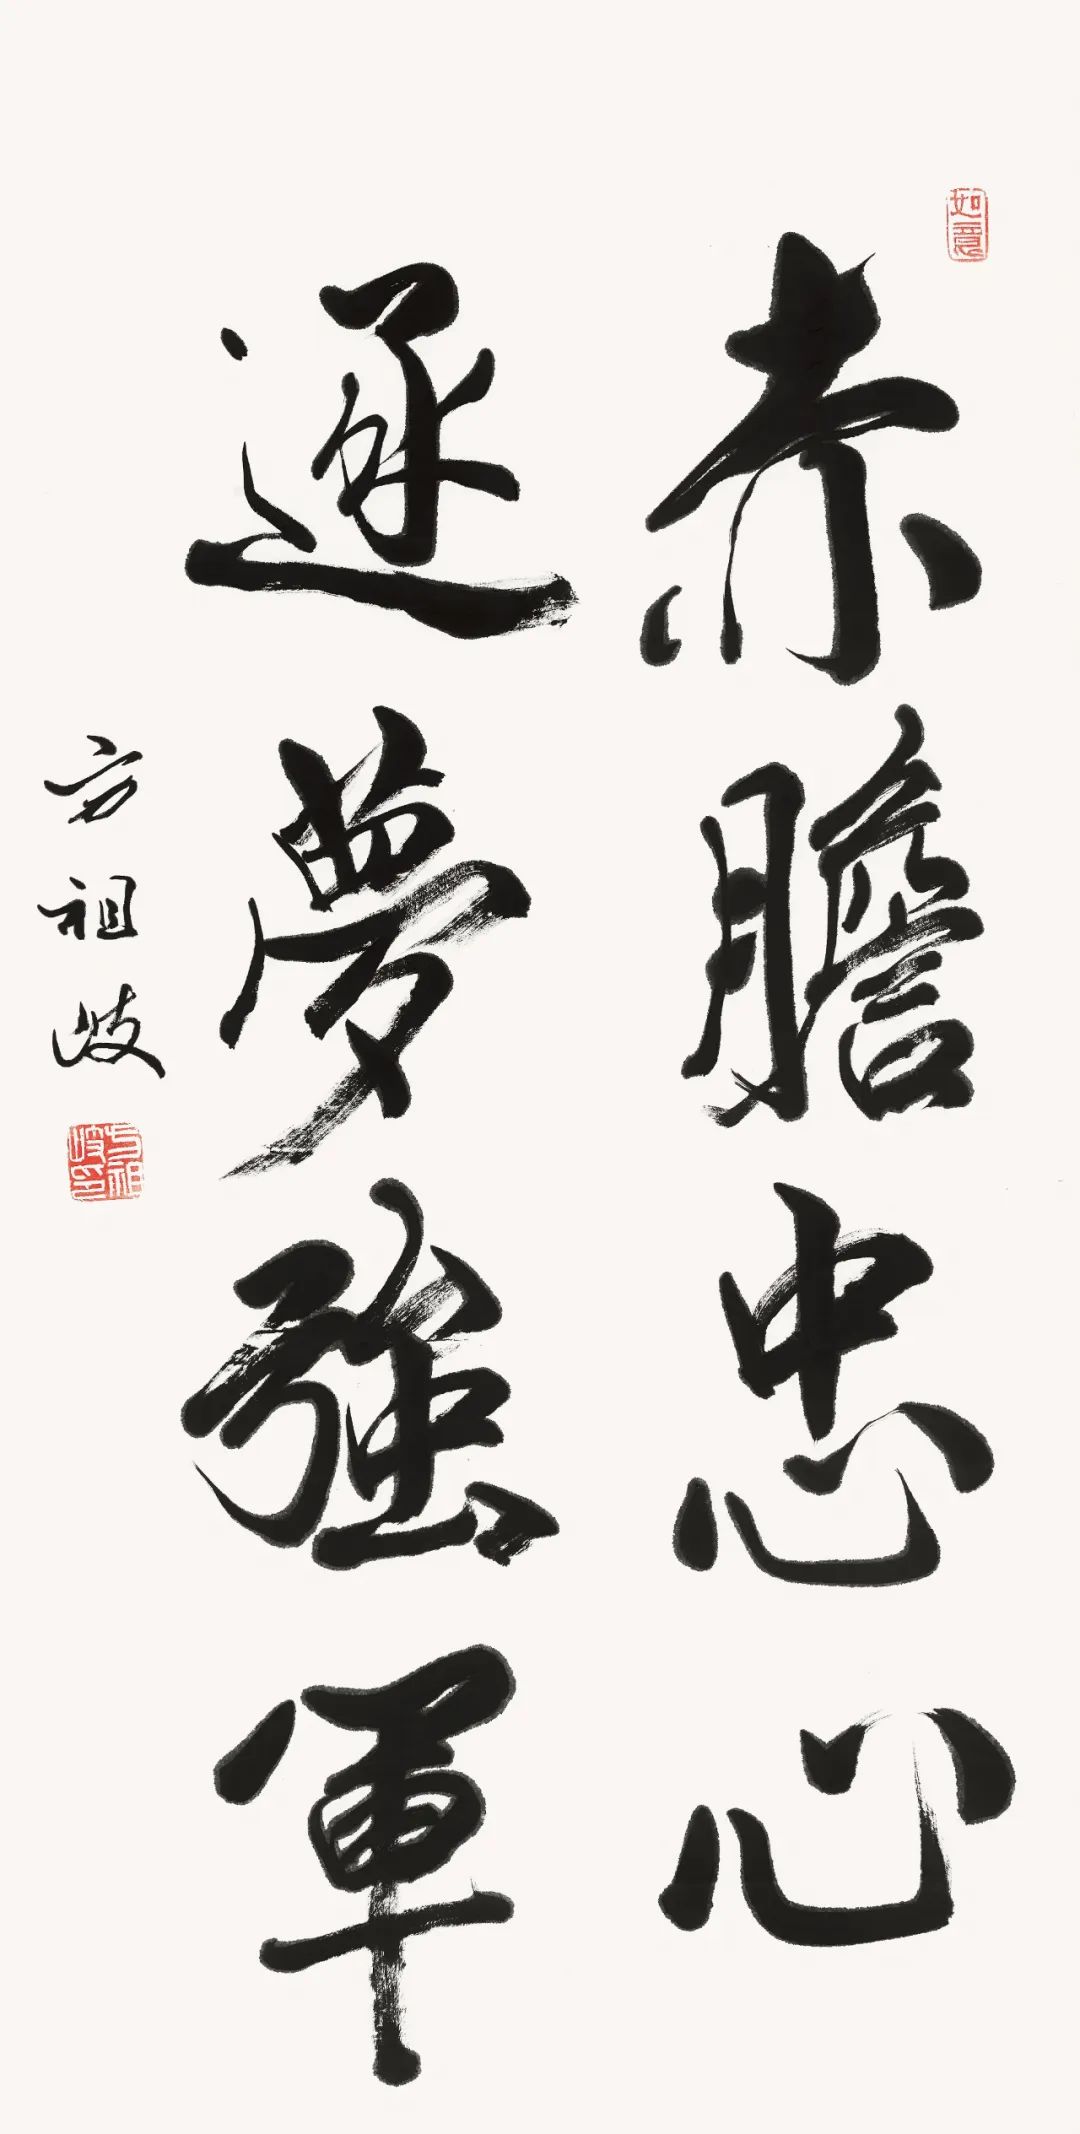 如意
赤膽忠心
逐夢強軍
方祖岐
方祖岐印